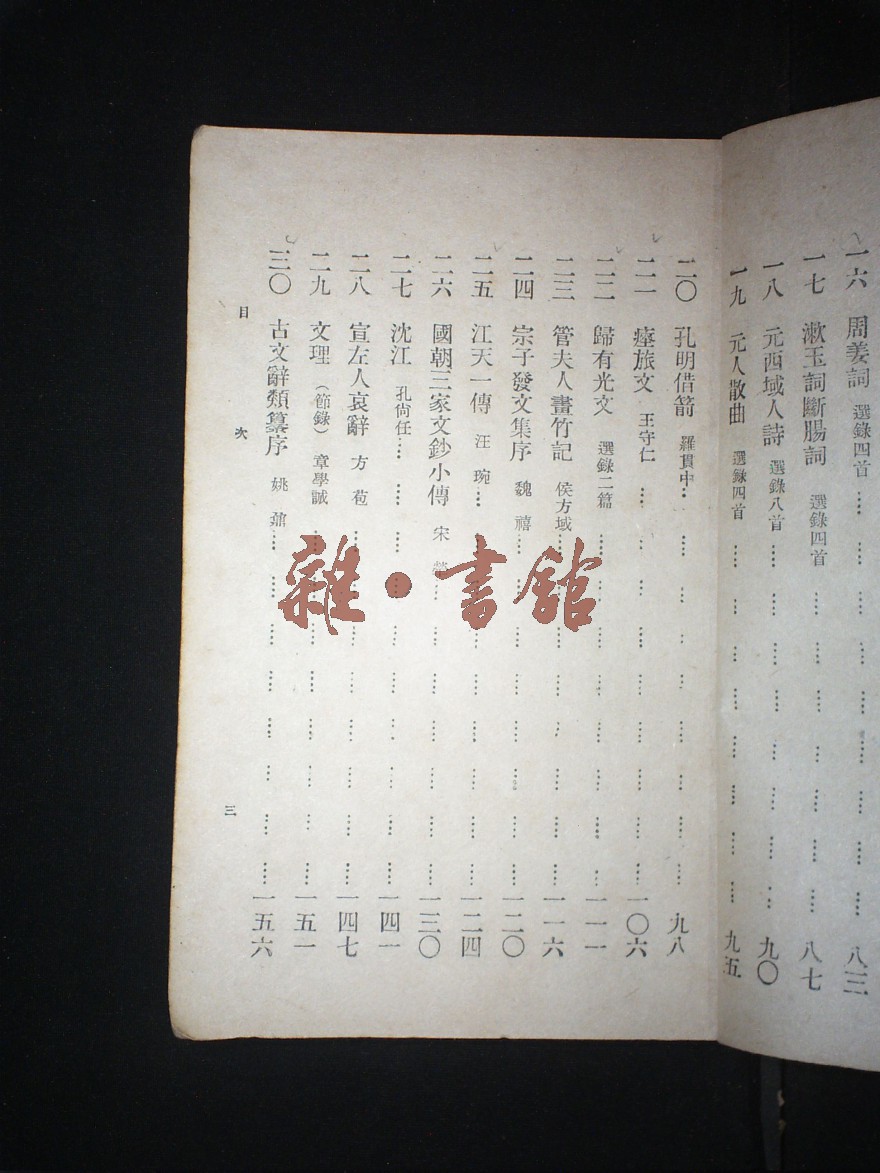 一六 周姜詞 選錄四首 八三
一七 漱玉詞斷腸詞 選錄四首 八七
一八 元西域人詩 選錄八首 九〇
一九 元人散曲 選錄四首 九五
二〇 孔明借箭 羅貫中 九八
二一 瘞旅文 王守仁 一〇六
二二 歸有光文 選錄二篇 一一一
二三 管夫人畫竹記 侯方域 一一六
二四 宗子發文集序 魏禧 一二〇
二五 江天一傳 汪琬 一二四
二六 國朝三家文鈔小傳 宋 一三〇
二七 沈江 孔尙任 一四一
二八 宣左人哀辭 方苞 一四七
二九 文理（節錄） 章學誠 一五一
三〇 古文辭類纂序 姚鼐 一五六
目次
三
雜·書館